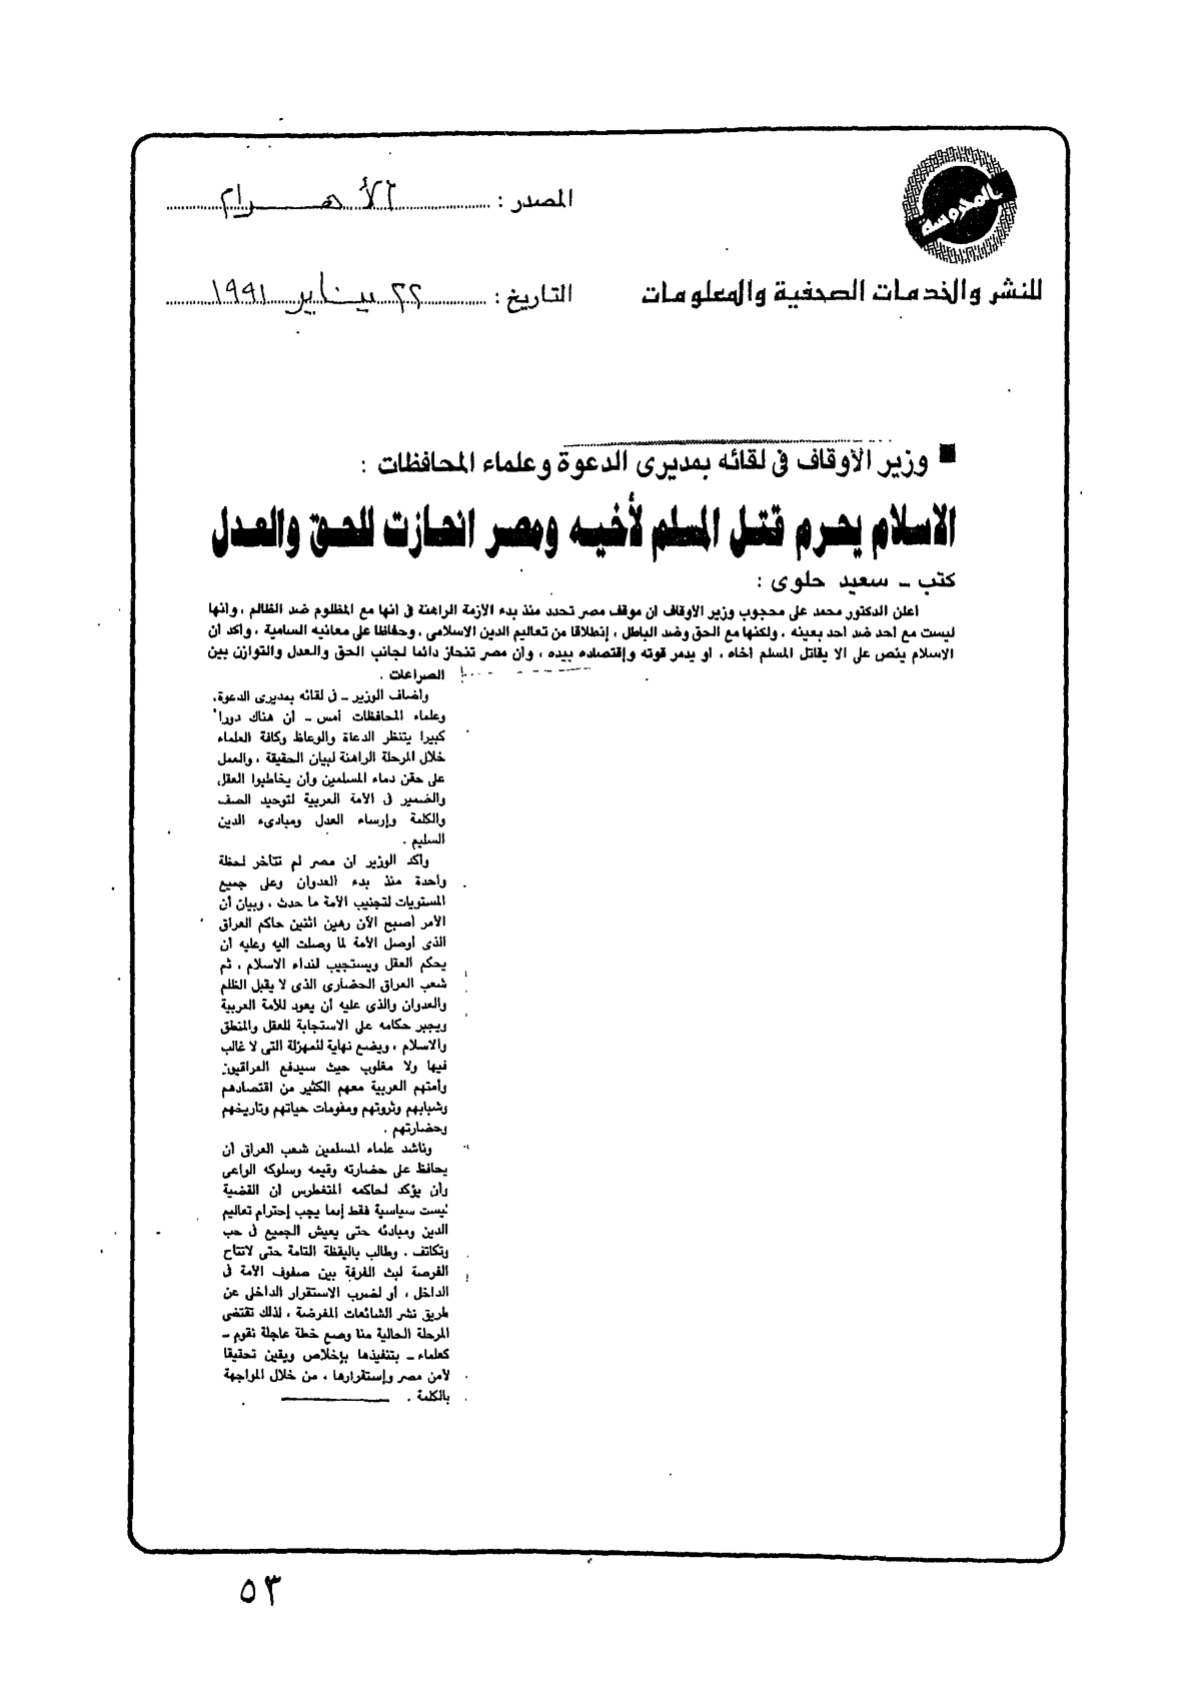 بالمدرسة
المصدر : الأهرام
للنشر والخدمات الصحفية والمعلومات
التاريخ : ٢٢ يناير ١٩٩١
■ وزير الأوقاف فى لقائه بمديرى الدعوة وعلماء المحافظات :
الاسلام يحرم قتل المسلم لأخيه ومصر انحازت للحق والعدل
كتب ــ سعيد حلوى :
اعلن الدكتور محمد على محجوب وزير الأوقاف ان موقف مصر تحدد منذ بدء الأزمة الراهنة فى انها مع المظلوم ضد الظالم ، وانها
ليست مع احد ضد احد بعينه ، ولكنها مع الحق وضد الباطل ، إنطلاقا من تعاليم الدين الاسلامى ، وحفاظا على معانيه السامية ، واكد أن
الاسلام ينص على الا يقاتل المسلم اخاه ، او يدمر قوته وإقتصاده بيده ، وأن مصر تنحاز دائما لجانب الحق والعدل والتوازن بين
الصراعات .
واضاف الوزير ــ فى لقائه بمديرى الدعوة
وعلماء المحافظات أمس ــ أن هناك دورا
كبيرا ينتظر الدعاة والوعاظ وكافة العلماء
خلال المرحلة الراهنة لبيان الحقيقة ، والعمل
على حقن دماء المسلمين وأن يخاطبوا العقل
والضمير فى الأمة العربية لتوحيد الصف
والكلمة وإرساء العدل ومبادىء الدين
السليم .
وأكد الوزير ان مصر لم تتأخر لحظة
واحدة منذ بدء العدوان وعلى جميع
المستويات لتجنيب الأمة ما حدث ، وبيان أن
الأمر أصبح الآن رهين اثنين حاكم العراق
الذى أوصل الأمة لما وصلت اليه وعليه أن
يحكم العقل ويستجيب لنداء الاسلام ، ثم
شعب العراق الحضارى الذى لا يقبل الظلم
والعدوان والذى عليه أن يعود للأمة العربية
ويجبر حكامه على الاستجابة للعقل والمنطق
والاسلام ، ويضع نهاية للمهزلة التى لا غالب
فيها ولا مغلوب حيث سيدفع العراقيون
وأمتهم العربية معهم الكثير من اقتصادهم
وشبابهم وثروتهم ومقومات حياتهم وتاريخهم
وحضارتهم .
وناشد علماء المسلمين شعب العراق أن
يحافظ على حضارته وقيمه وسلوكه الواعى
وأن يؤكد لحاكمه المتغطرس أن القضية
ليست سياسية فقط إنما يجب إحترام تعاليم
الدين ومبادئه حتى يعيش الجميع فى حب
وتكاتف . وطالب باليقظة التامة حتى لاتتاح
الفرصة لبث الفرقة بين صفوف الأمة فى
الداخل ، أو لضرب الاستقرار الداخلى عن
طريق نشر الشائعات المغرضة ، لذلك تقتضى
المرحلة الحالية منا وضع خطة عاجلة نقوم ــ
كعلماء ــ بتنفيذها بإخلاص ويقين تحقيقا
لأمن مصر وإستقرارها ، من خلال المواجهة
بالكلمة .
٥٣